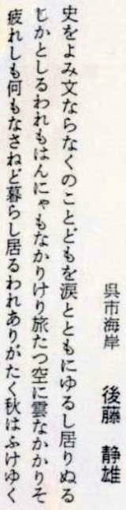 呉市海岸　後藤　静雄
史をよみ文ならなくのことどもを涙とともにゆるし居りぬる
じかとしるわれもはんにゃもなかりけり旅たつ空に雲なかかりそ
疲れしも何もなさねど暮らし居るわれありがたく秋はふけゆく